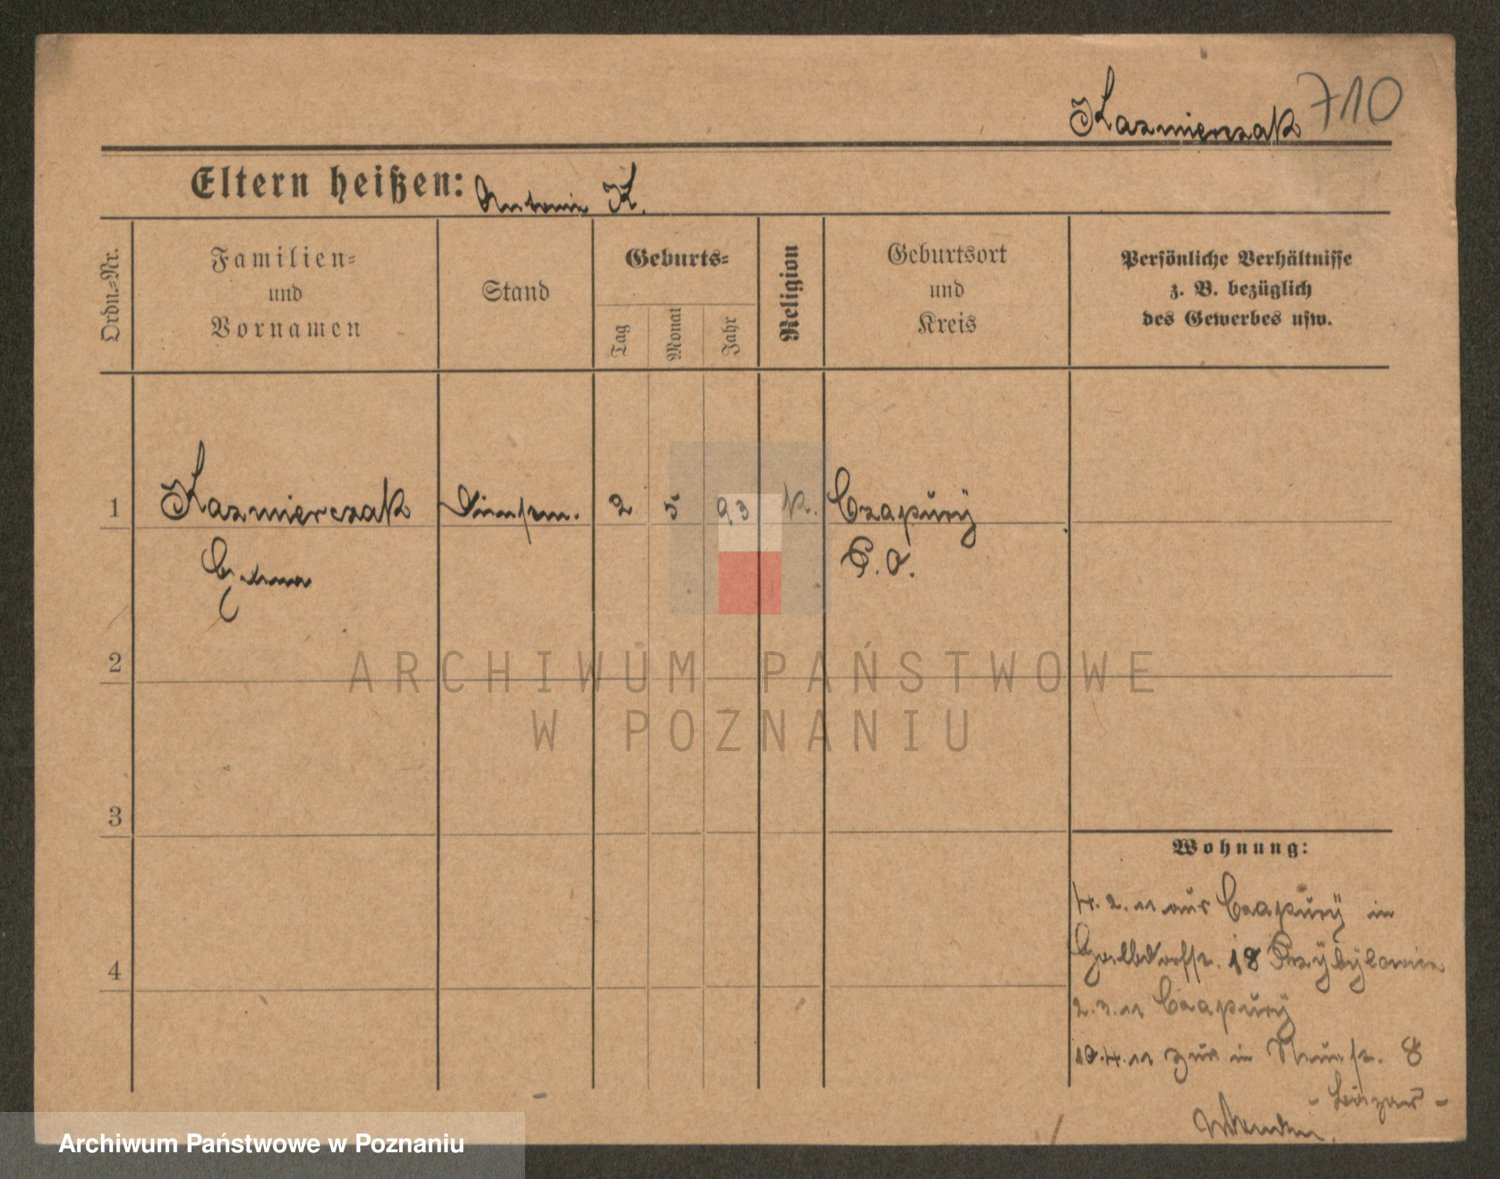 Kazmierczak 710
Eltern heißen: Antonie K.
Ordn.-Nr.
Familien-
und
Vornamen
Stand
Geburts-
Tag
Monat
Jahr
Religion
Geburtsort
und
Kreis
Persönliche Verhältnisse
z. B. bezüglich
des Gewerbes usw.
1 Kazmierczak 2 5 93 k. Czapury
P. O.
2
3
4
Wohnung:
4. 2. 11 aus Czapury in
18 Przybylowicz
2. 3. 11 Czapury
19.4.11 zur in 8
- Lazar -
ARCHIWUM PAŃSTWOWE
W POZNANIU
Archiwum Państwowe w Poznaniu